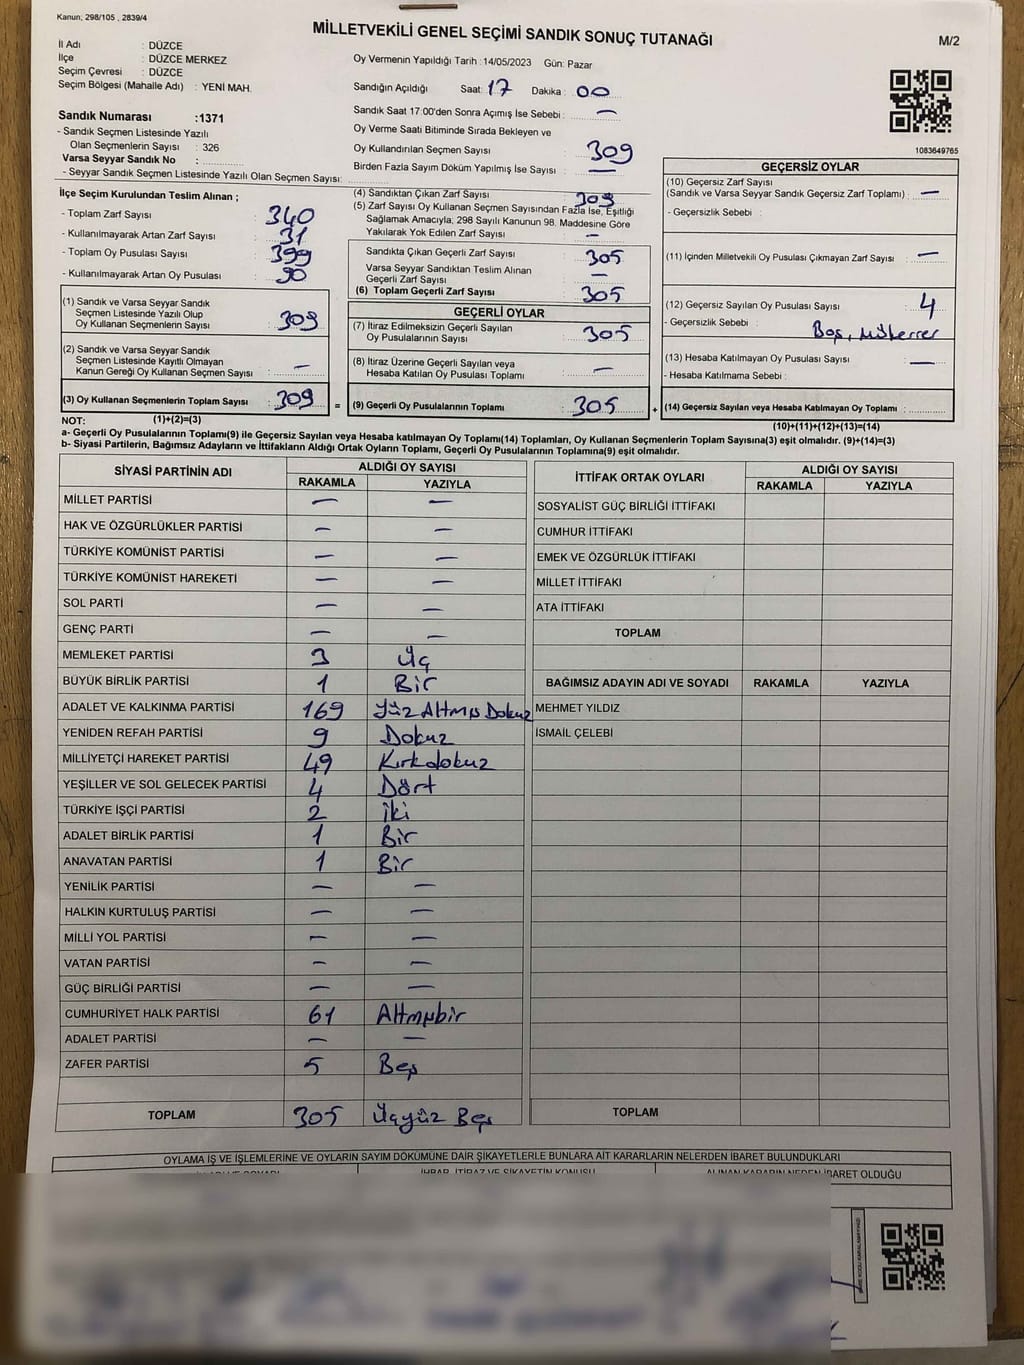 Kanun; 298/105 , 2839/4
MİLLETVEKİLİ GENEL SEÇİMİ SANDIK SONUÇ TUTANAĞI
M/2
İl Adı : DÜZCE
İlçe : DÜZCE MERKEZ
Seçim Çevresi : DÜZCE
Seçim Bölgesi (Mahalle Adı) : YENİ MAH.
Oy Vermenin Yapıldığı Tarih : 14/05/2023 Gün: Pazar
Sandığın Açıldığı Saat: 17 Dakika : 00
Sandık Saat 17:00'den Sonra Açımış İse Sebebi : —
Oy Verme Saati Bitiminde Sırada Bekleyen ve
Oy Kullandırılan Seçmen Sayısı : 309
Birden Fazla Sayım Döküm Yapılmış İse Sayısı : —
Sandık Numarası :1371
- Sandık Seçmen Listesinde Yazılı
Olan Seçmenlerin Sayısı : 326
Varsa Seyyar Sandık No :
- Seyyar Sandık Seçmen Listesinde Yazılı Olan Seçmen Sayısı:
1083649765
İlçe Seçim Kurulundan Teslim Alınan ;
- Toplam Zarf Sayısı : 340
- Kullanılmayarak Artan Zarf Sayısı : 31
- Toplam Oy Pusulası Sayısı : 399
- Kullanılmayarak Artan Oy Pusulası : 90
(1) Sandık ve Varsa Seyyar Sandık
Seçmen Listesinde Yazılı Olup
Oy Kullanan Seçmenlerin Sayısı : 309
(2) Sandık ve Varsa Seyyar Sandık
Seçmen Listesinde Kayıtlı Olmayan
Kanun Gereği Oy Kullanan Seçmen Sayısı : —
(3) Oy Kullanan Seçmenlerin Toplam Sayısı : 309 =
(1)+(2)=(3)
(4) Sandıktan Çıkan Zarf Sayısı : 309
(5) Zarf Sayısı Oy Kullanan Seçmen Sayısından Fazla İse, Eşitliği
Sağlamak Amacıyla, 298 Sayılı Kanunun 98. Maddesine Göre
Yakılarak Yok Edilen Zarf Sayısı : —
Sandıkta Çıkan Geçerli Zarf Sayısı : 305
Varsa Seyyar Sandıktan Teslim Alınan
Geçerli Zarf Sayısı : —
(6) Toplam Geçerli Zarf Sayısı : 305
GEÇERLİ OYLAR
(7) İtiraz Edilmeksizin Geçerli Sayılan
Oy Pusulalarının Sayısı : 305
(8) İtiraz Üzerine Geçerli Sayılan veya
Hesaba Katılan Oy Pusulası Toplamı : —
(9) Geçerli Oy Pusulalarının Toplamı : 305 +
GEÇERSİZ OYLAR
(10) Geçersiz Zarf Sayısı
(Sandık ve Varsa Seyyar Sandık Geçersiz Zarf Toplamı) : —
- Geçersizlik Sebebi :
(11) İçinden Milletvekili Oy Pusulası Çıkmayan Zarf Sayısı : —
(12) Geçersiz Sayılan Oy Pusulası Sayısı : 4
- Geçersizlik Sebebi : Boş, Mükerrer
(13) Hesaba Katılmayan Oy Pusulası Sayısı : —
- Hesaba Katılmama Sebebi :
(14) Geçersiz Sayılan veya Hesaba Katılmayan Oy Toplamı :
(10)+(11)+(12)+(13)=(14)
NOT:
a- Geçerli Oy Pusulalarının Toplamı(9) ile Geçersiz Sayılan veya Hesaba katılmayan Oy Toplamı(14) Toplamları, Oy Kullanan Seçmenlerin Toplam Sayısına(3) eşit olmalıdır. (9)+(14)=(3)
b- Siyasi Partilerin, Bağımsız Adayların ve İttifakların Aldığı Ortak Oyların Toplamı, Geçerli Oy Pusulalarının Toplamına(9) eşit olmalıdır.
SİYASİ PARTİNİN ADI ALDIĞI OY SAYISI
RAKAMLA YAZIYLA
MİLLET PARTİSİ — —
HAK VE ÖZGÜRLÜKLER PARTİSİ — —
TÜRKİYE KOMÜNİST PARTİSİ — —
TÜRKİYE KOMÜNİST HAREKETİ — —
SOL PARTİ — —
GENÇ PARTİ — —
MEMLEKET PARTİSİ 3 Üç
BÜYÜK BİRLİK PARTİSİ 1 Bir
ADALET VE KALKINMA PARTİSİ 169 Yüz Altmış Dokuz
YENİDEN REFAH PARTİSİ 9 Dokuz
MİLLİYETÇİ HAREKET PARTİSİ 49 Kırkdokuz
YEŞİLLER VE SOL GELECEK PARTİSİ 4 Dört
TÜRKİYE İŞÇİ PARTİSİ 2 İki
ADALET BİRLİK PARTİSİ 1 Bir
ANAVATAN PARTİSİ 1 Bir
YENİLİK PARTİSİ — —
HALKIN KURTULUŞ PARTİSİ — —
MİLLİ YOL PARTİSİ — —
VATAN PARTİSİ — —
GÜÇ BİRLİĞİ PARTİSİ — —
CUMHURİYET HALK PARTİSİ 61 Altmışbir
ADALET PARTİSİ — —
ZAFER PARTİSİ 5 Beş
TOPLAM 305 Üçyüz Beş
İTTİFAK ORTAK OYLARI ALDIĞI OY SAYISI
RAKAMLA YAZIYLA
SOSYALİST GÜÇ BİRLİĞİ İTTİFAKI
CUMHUR İTTİFAKI
EMEK VE ÖZGÜRLÜK İTTİFAKI
MİLLET İTTİFAKI
ATA İTTİFAKI
TOPLAM
BAĞIMSIZ ADAYIN ADI VE SOYADI RAKAMLA YAZIYLA
MEHMET YILDIZ
İSMAİL ÇELEBİ
TOPLAM
OYLAMA İŞ VE İŞLEMLERİNE VE OYLARIN SAYIM DÖKÜMÜNE DAİR ŞİKAYETLERLE BUNLARA AİT KARARLARIN NELERDEN İBARET BULUNDUKLARI
İHBAR, İTİRAZ VE ŞİKAYETİN KONUSU ALINAN KARARIN NEDEN İBARET OLDUĞU